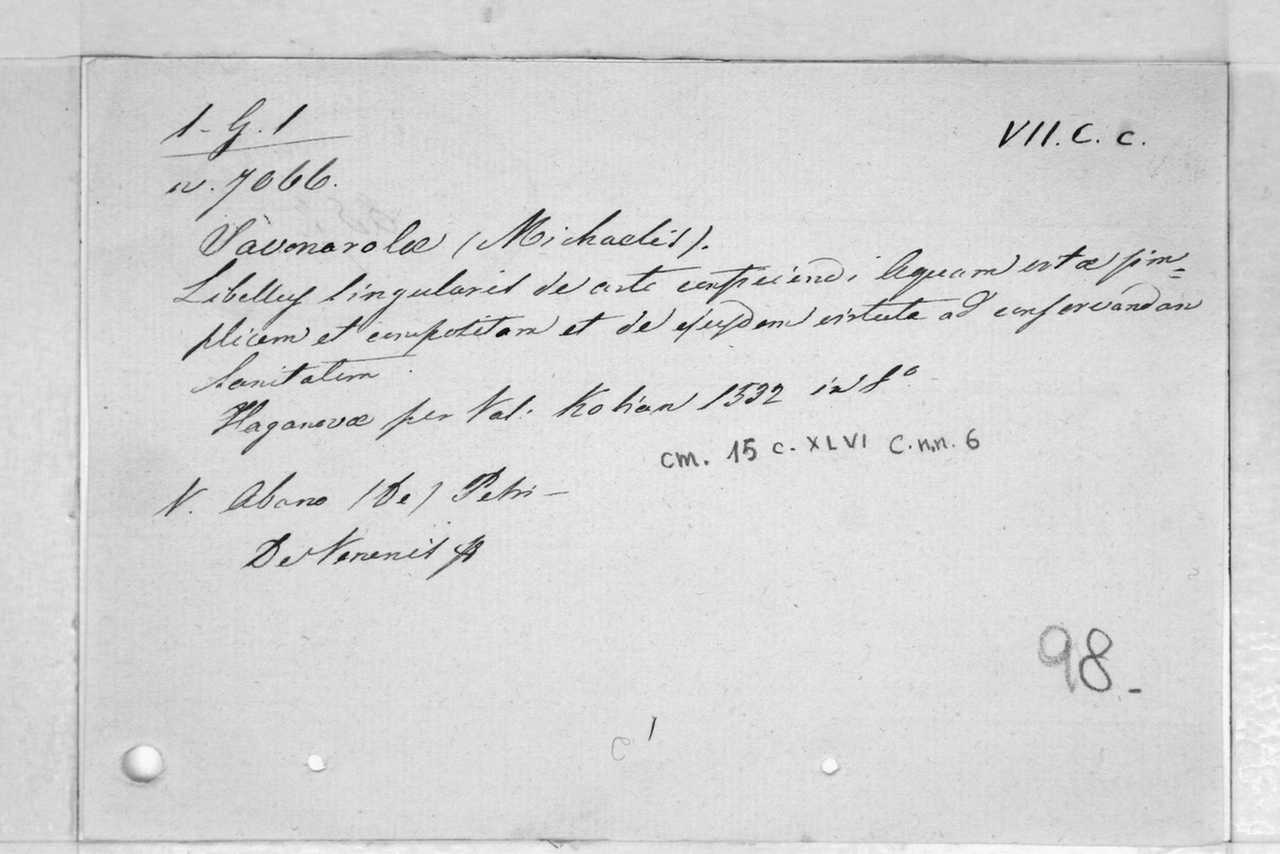 1-G.1
VII.C.c.
n. 7066.
Savonarolæ (Michaelis).
Libellus singularis de arte conficiendi Aquam vitæ sim=
plicem et compositam et de ejusdem virtute ad conservandan
Sanitatem.
Haganoæ per Val. Kobian 1532 in 8°
cm. 15 c. XLVI C.n.n. 6
V. Abano (De) Petri —
De Venenis
98-
c 1